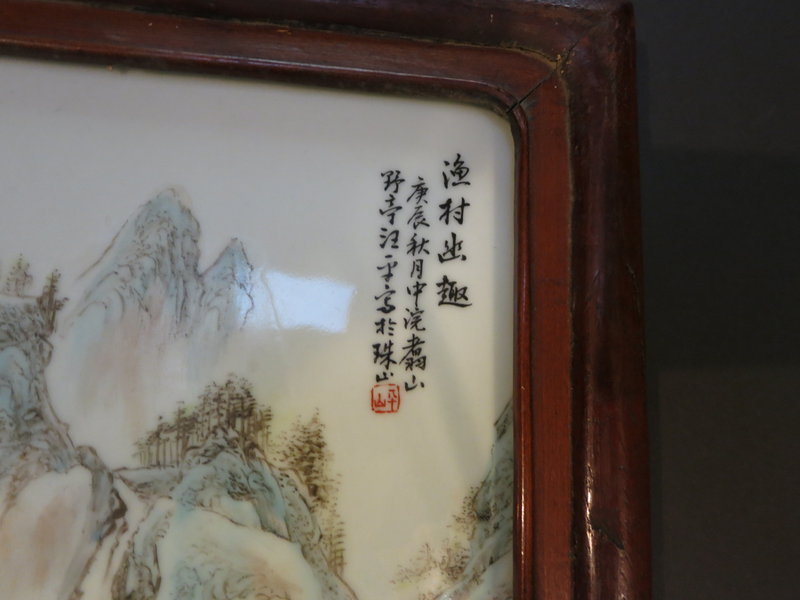 漁村幽趣
庚辰秋月中浣翥山
野亭汪平寫於珠山
平山